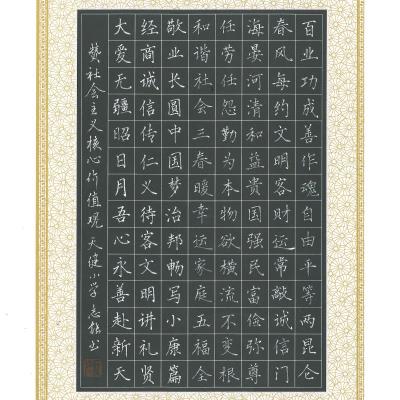 百业功成善作魂自由平等两昆仑
春风每约文明客财运常敲诚信门
海晏河清和益贵国强民富俭弥尊
任劳任怨勤为本物欲横流不变根
和谐社会三春暖幸运家庭五福全
敬业长圆中国梦治邦畅写小康篇
经商诚信传仁义待客文明讲礼贤
大爱无疆昭日月吾心永善赴新天
赞社会主义核心价值观 天健小学 志书